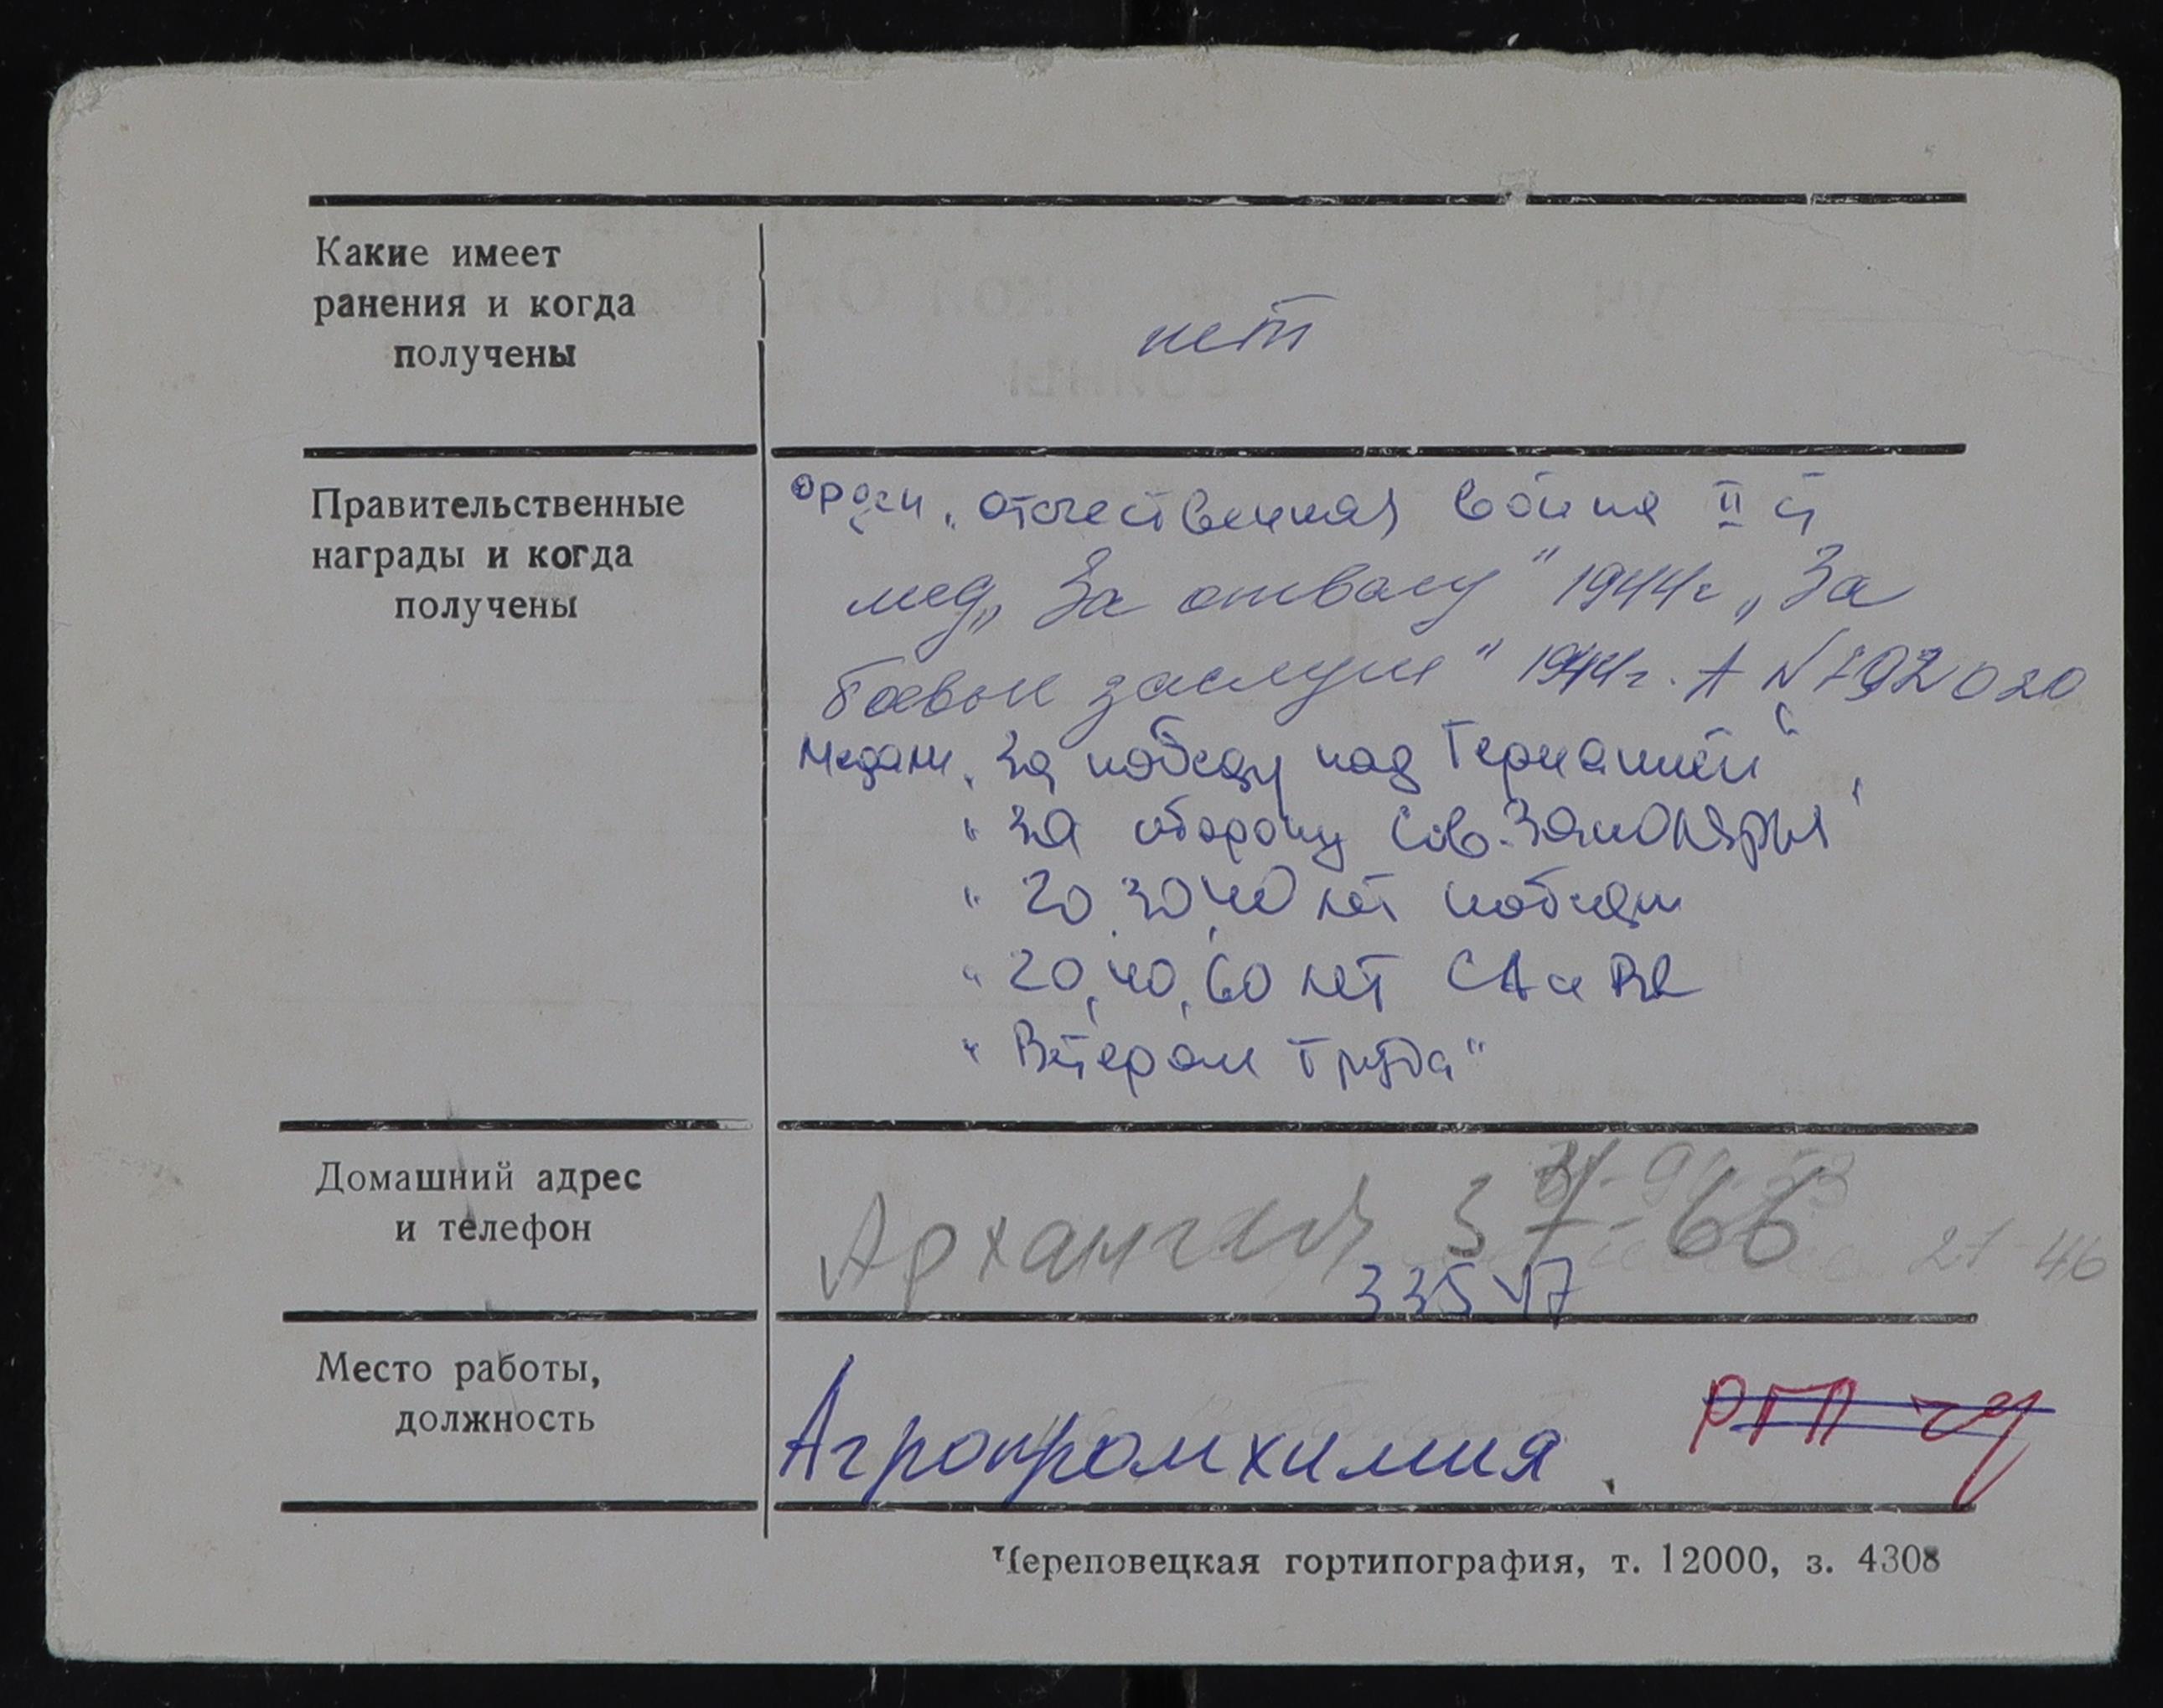 Какие имеет
ранения и когда
получены
нет
Правительственные
награды и когда
получены
орден „отечественная война II ст
мед „За отвагу" 1944г „За
боевые заслуги" 1944г. А N 792020
Медали „За победу над Германией"
„ За оборону Сов. Заполярья"
„ 20, 30, 40 лет победы
„ 20, 40, 60 лет СА и ВС
„ Ветеран труда"
Домашний адрес
и телефон
37-66
21-46
33547
Место работы,
должность
Агропромхимия.
РГП
Череповецкая гортипография, т. 12000, з. 4308